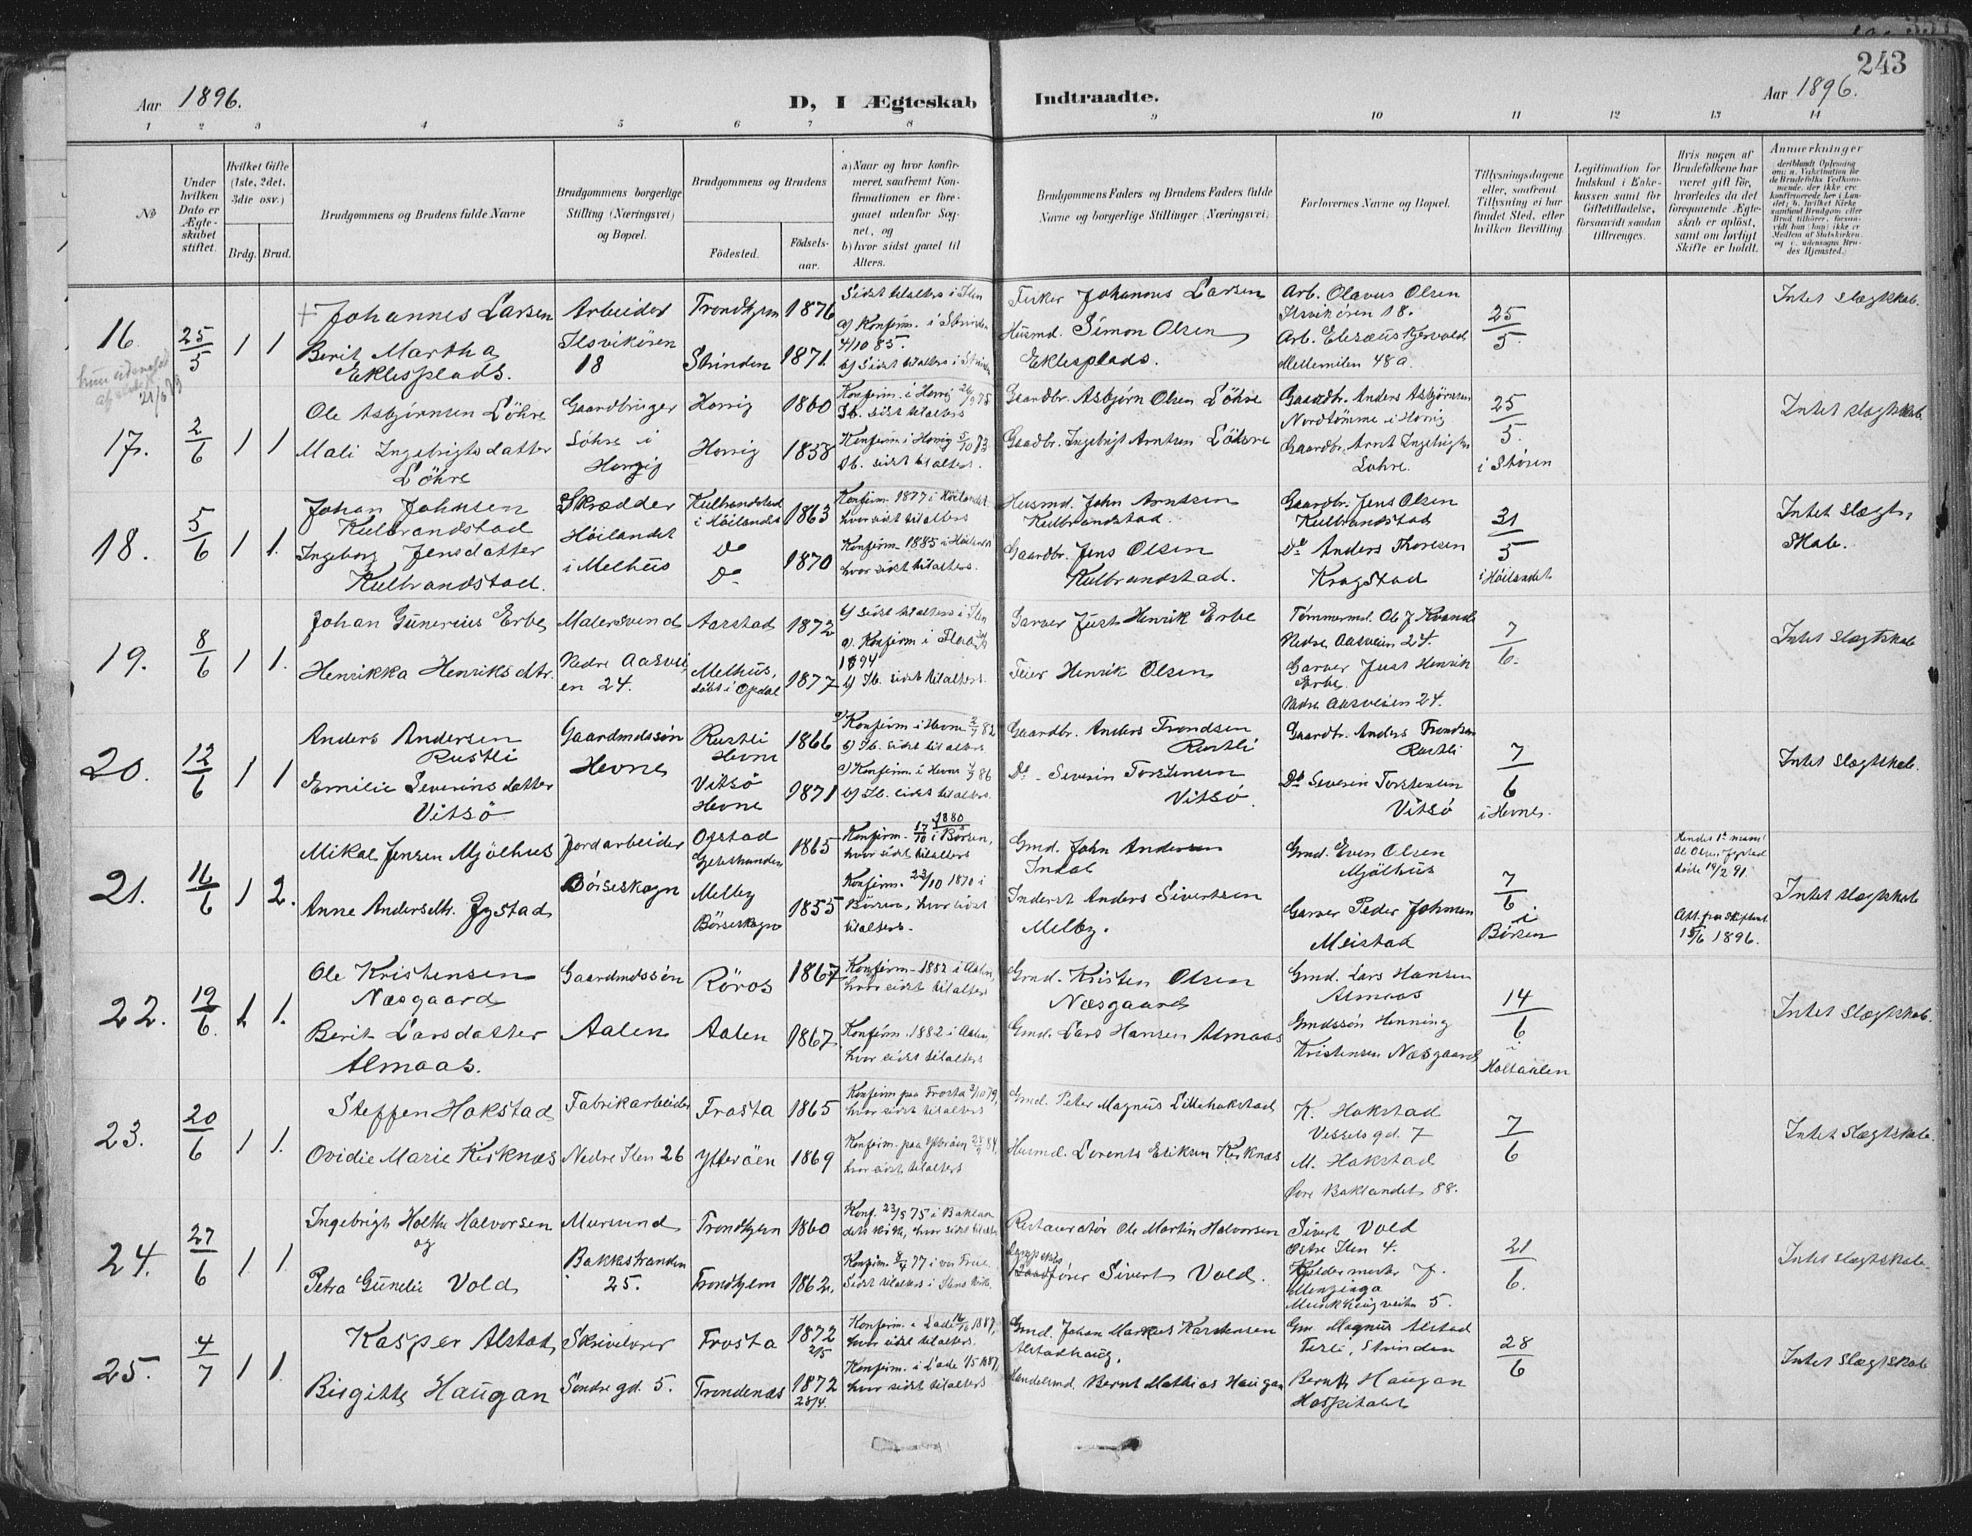 243
Aar 1896.
D, I Ægteskab Indtraadte.
Aar 1896.
1 2 3 4 5 6 7 8 9 10 11 12 13 14
No
Under hvilken Dato er Ægteskabet stiftet.
Hvilket Gifte (1ste, 2det, 3die osv.)
Brdg. Brud.
Brudgommens og Brudens fulde Navne
Brudgommens borgerlige Stilling (Næringsvei) og Bopæl.
Brudgommens og Brudens
Fødested.
Fødsels-aar.
a) Naar og hvor konfirmeret, saafremt Konfirmationen er foregaaet udenfor Sognet, og
b) hvor sidst gaaet til Alters.
Brudgommens Faders og Brudens Faders fulde Navne og borgerlige Stillinger (Næringsvei)
Forlovernes Navne og Bopæl.
Tillysningsdagene eller, saafremt Tillysning ei har fundet Sted, efter hvilken Bevilling.
Legitimation for Indskud i Enkekassen samt for Giftetilladelse, forsaavidt saadan tiltrænges.
Hvis nogen af Brudefolkene har været gift før, hvorledes da det foregaaende Ægteskab er opløst, samt om lovligt Skifte er holdt.
Anmærkninger
16. 25/5 1 1
Johannes Larsen
Berit Martha
Eklesplads.
Arbeider
Ilsvikøren
18
Trondhjem 1876
Strinden 1871.
Sidst tilalters i Ilen
a) Konfirm. i Strinden
4/10 85.
Johannes Larsen
Husmd. Simon Olsen
Eklesplads.
Arb. Olavus Olsen
Ilsvikøren 18.
Mellemilen 48a
25/5
Intet slægtskab.
17. 2/6 1 1
Ole Asbjørnsen Löhre
Mali Ingebrigtsdatter
Löhre
Gaardbruger
Løhre i
Horrig
Horrig 1860
Horrig 1858
Gaardbr. Asbjørn Olsen Löhre
Gaardbr. Ingebrigt Arntsen Löhre
Gaardbr. Anders Asbjørnsen
Nordtømme i Horrig
Gaardbr. Arnt Ingebrigtsen
Lohre.
25/5.
i Støren
Intet slægtskab.
18. 5/6 1 1.
Johan Johnsen
Kulbrandstad
Ingeborg Jensdatter
Kulbrandstad.
Skrædder
Höilandet
i Melhus
Kulbrandstad
i Höilandet 1863
Do
Do 1870
Konfirm. 1877 i Höilandet
hvor sidst tilalters
Konfirm. 1885 i Höilandet
hvor sidst tilalters.
Husmd. John Arntsen
Kulbrandstad.
Gaardbr. Jens Olsen
Kulbrandstad.
Gaardbr. Jens Olsen
Kulbrandstad
Do Anders Thoresen
Kragstad
31/5
i Höilandet
Intet slægt-
skab.
19. 8/6 1 1.
Johan Gunerius Erbe
Henrikka Henriksdtr.
Malersvend
Nedre Aasvei
en 24.
Aarstad 1872
Melhus,
döbt i Opdal 1877
b) sidst tilalters i Ilen
1894
b) Ib. sidst tilalters.
Garver Just Henrik Erbe
Feier Henrik Olsen
Tømmermd. Ole J Kvande
Nedre Aasveien 24.
Garver Just Henrik
Erbe.
Nedre Aasveien 24.
7/6.
Intet slægtskab
20. 12/6 1 1
Anders Andersen
Rustli
Emilie Severinsdatter
Vitsö
Gaardmdssön
Hevne
Rustli
Hevne 1866
Vitsö
Hevne 1871
a) Konfirm. i Hevne
b) Ib. sidst tilalters
a) Konfirm. i Hevne
b) Ib. sidst tilalters.
Gaardbr. Anders Trondsen
Rustli
Do - Severin Torstensen
Vitsö.
Gaardbr. Anders Trondsen
Rustli
Do Severin Torstensen
Vitsö
7/6
i Hevne.
Intet slægtskab.
21. 16/6 1 2.
Mikal Jensen Mjölhus
Anne Andersdtr. Jystad
Jordarbeider
Börseskogn
1865
Melby
Börseskogn 1855
Konfirm. 17/10 1880 i Börsen,
hvor sidst tilalters
Konfirm. 23/10 1870 i
Börsen, hvor sidst
tilalters.
Gmd. John Andersen
Indal
Inderst Anders Sivertsen
Melby.
Gmd. Even Olsen
Mjölhus
Garver Peder Johnsen
Meistad
7/6.
i
Börsen
Hendes 1ste mand
Ole Olsen Jystad
döde 19/2 91.
Att. fra Skifteret
15/6 1896.
Intet slægtskab
22. 19/6. 1 1.
Ole Kristensen
Næsgaard
Berit Larsdatter
Almaas.
Gaardmdssön
Aalen
Röros 1867
Aalen 1867
Konfirm. 1882 i Aalen,
hvor sidst tilalters
Konfirm. 1882 i Aalen,
hvor sidst tilalters
Gmd. Kristen Olsen
Næsgaard
Gmd. Lars Hansen Almaas
Gmd. Lars Hansen
Almaas
Gmdssön Henning
Kristensen Næsgaard
14/6
i
Holtaalen
Intet slægtskab.
23. 20/6 1 1.
Steffen Hokstad
Ovidie Marie Kirknæs
Fabrikarbeider
Nedre Ilen 26
Frosta 1865
Ytteröen 1869
Konfirm. paa Frosta
hvor sidst tilalters
Konfirm. paa Ytteröen
hvor sidst tilalters
Gmd. Peter Magnus Lillehokstad
Husmd. Lorents Eliksen Kirknæs
K. Hokstad
Vesselsgd. 7
M. Hokstad
Øvre Baklandet 88.
7/6
Intet Slægtskab.
24. 27/6 1. 1.
Ingebrigt Holthe Halvorsen
og
Petra Gunelie Vold
Mursvend
Bakkestranden
25.
Trondhjem 1860
Trondhjem 1862.
Konf. 23/5 75 i Baklan
dets kirke, hvor sidst tilalters
Sidst tilalters i Ilens kirke.
Restauratør Ole Martin Halvorsen
Sivert Vold.
Sivert Vold
Østre Ilen 4.
5.
21/6.
Intet slægtskab.
25. 4/7 1 1.
Kasper Alstad
Birgitte Haugan
Skrivelover
Søndregd. 5.
Frosta 1872
2/5
Trondenæs 1872
28/4.
Konfirm. i Lade
hvor sidst tilalters
Konfirm. i Lade 1/5 1887,
hvor sidst tilalters
Gmd. Johan Markus Karstensen
Alstadhaug.
Handelsmd. Bernt Mathias Haugan
Gm. Magnus Alstad
Ferli, Strinden
Bernth Haugan
Hospitalet
28/6
Intet Slægtskab